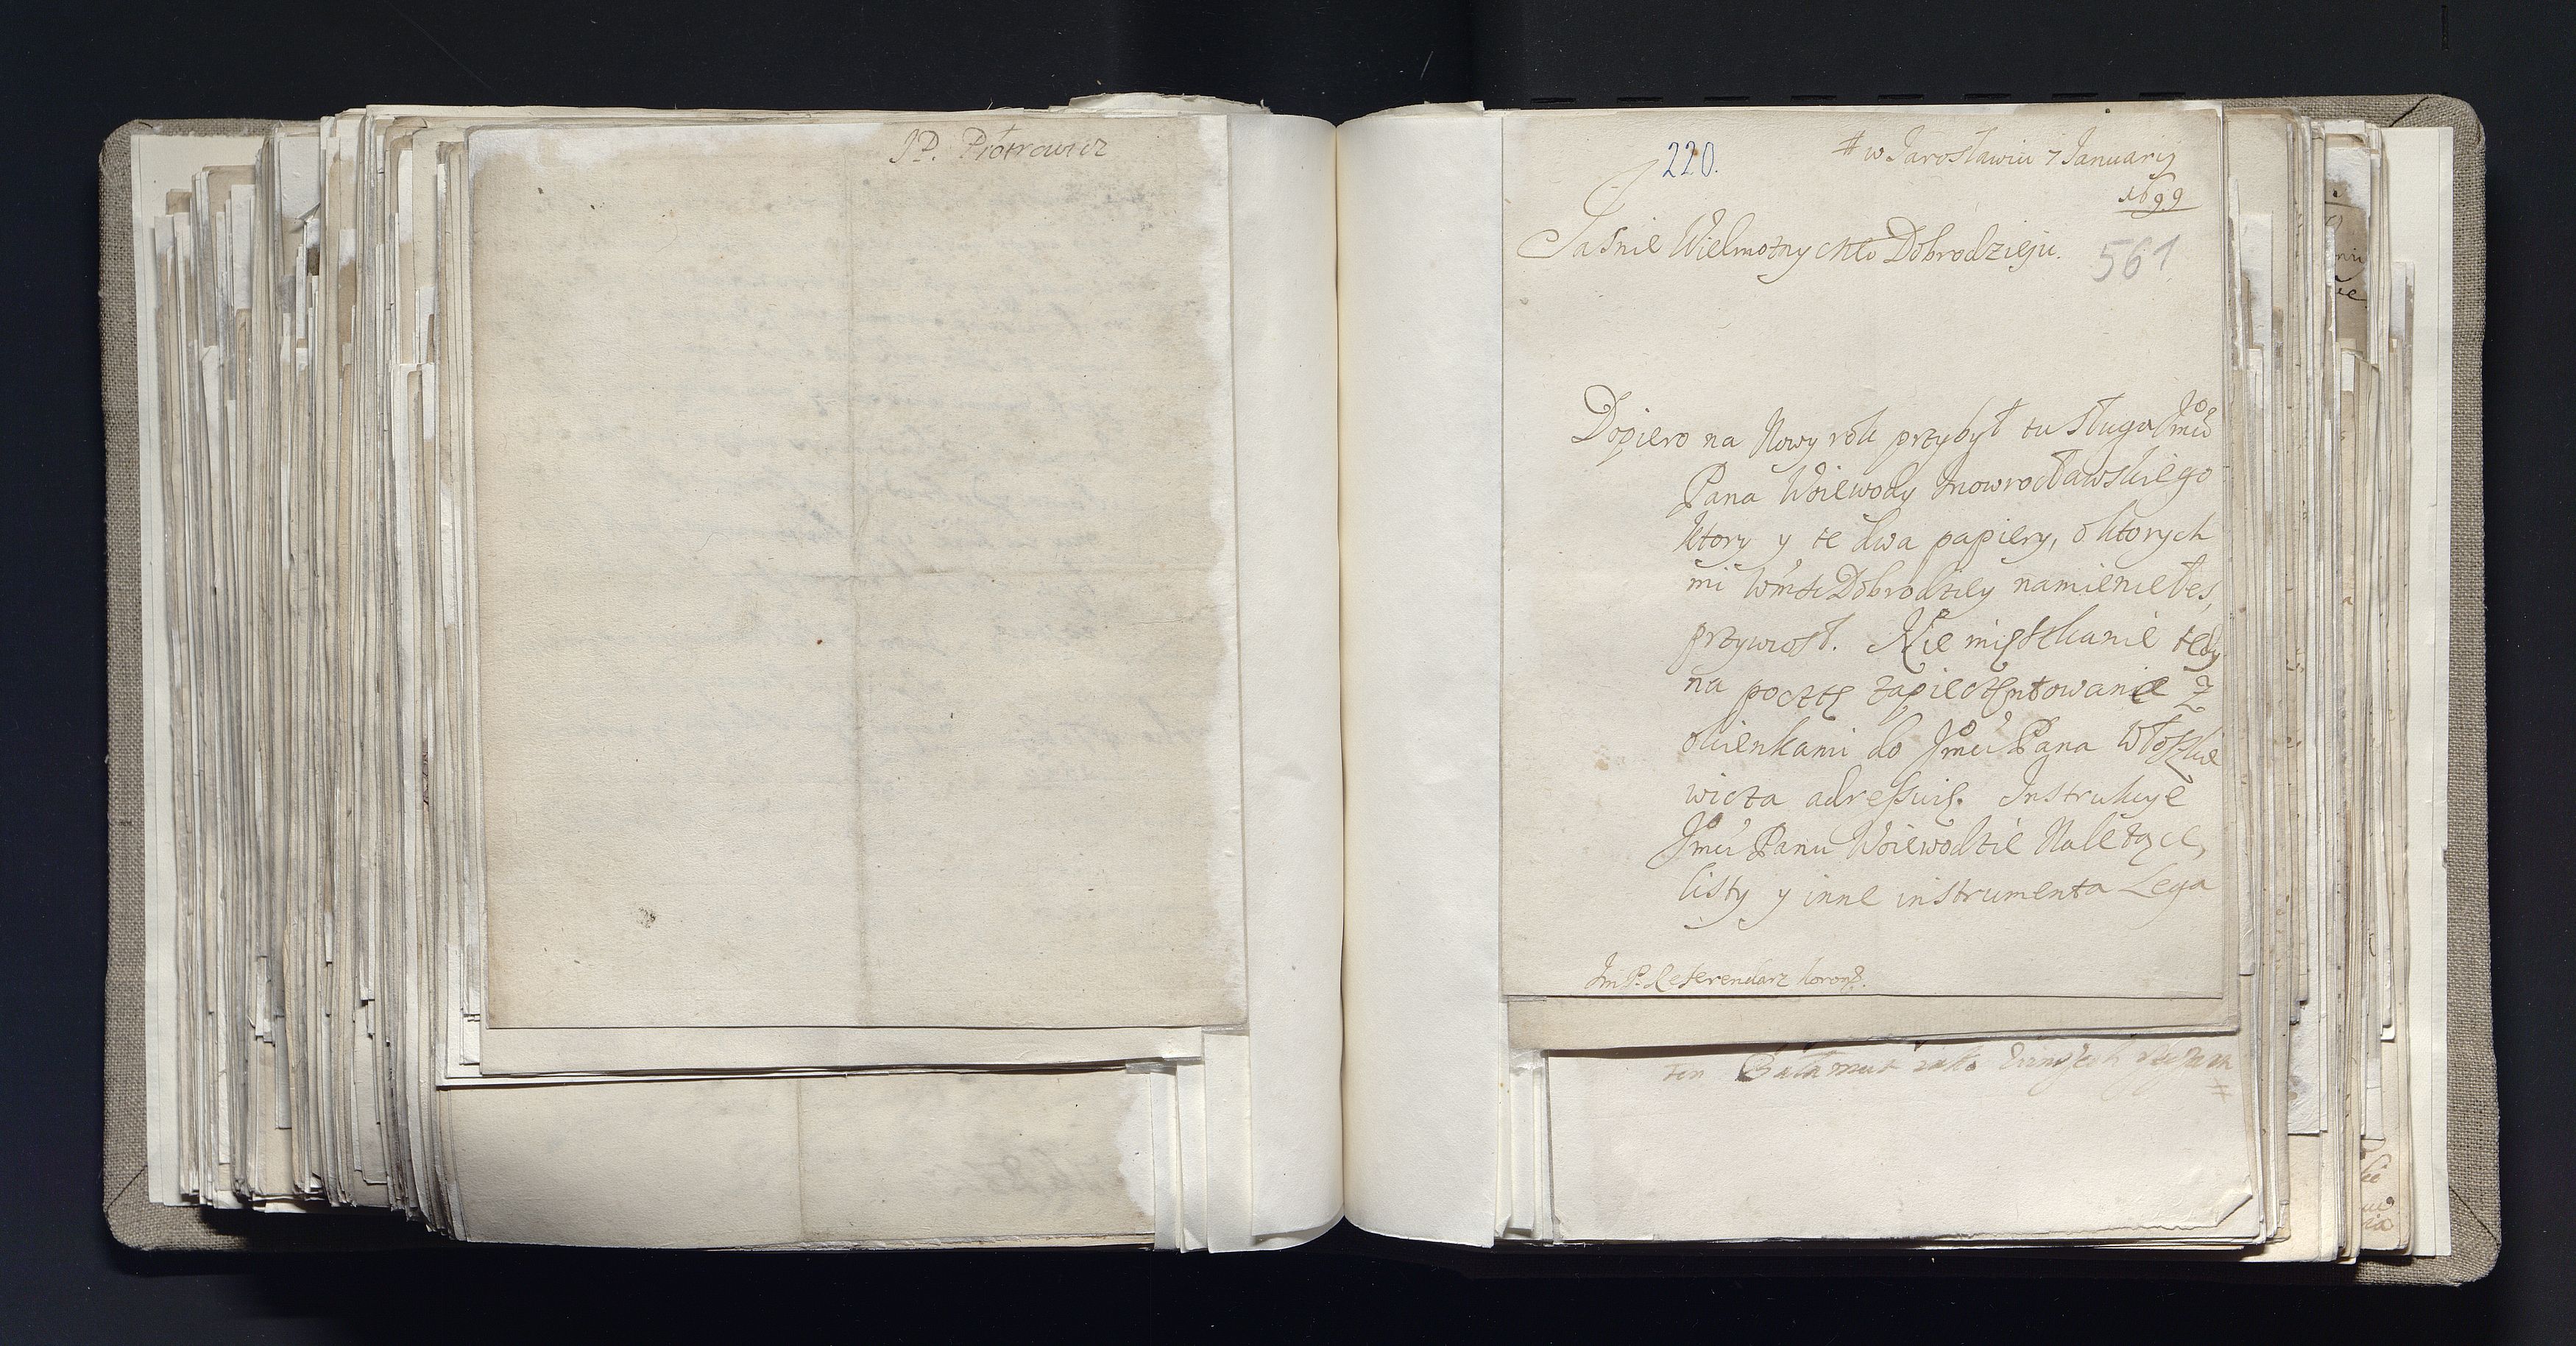 JP. Piotrowicz
220.
# w Jarosławiu 7 Januarij
1699
Jaśnie Wielmożny Mło Dobrodzieju.
561
Dopiero na Nowy rok przybył tu Sługa Jmci
Pana Woiewody Inowrocławskiego
ktory y te dwa papiery, o ktorych
mi Wmść Dobrodziey namieniełeś,
przywiosł. Nie mięszkanie tedy
na pocztę zapieczętowane z
okienkami do Jmci Pana Włoszkie
wicza adressuię. Instrukcye
Jmci Panu Woiewodzie Należące,
listy y inne instrumenta Lega
Jm P. Referendarz koron.
ten Bałamut iako